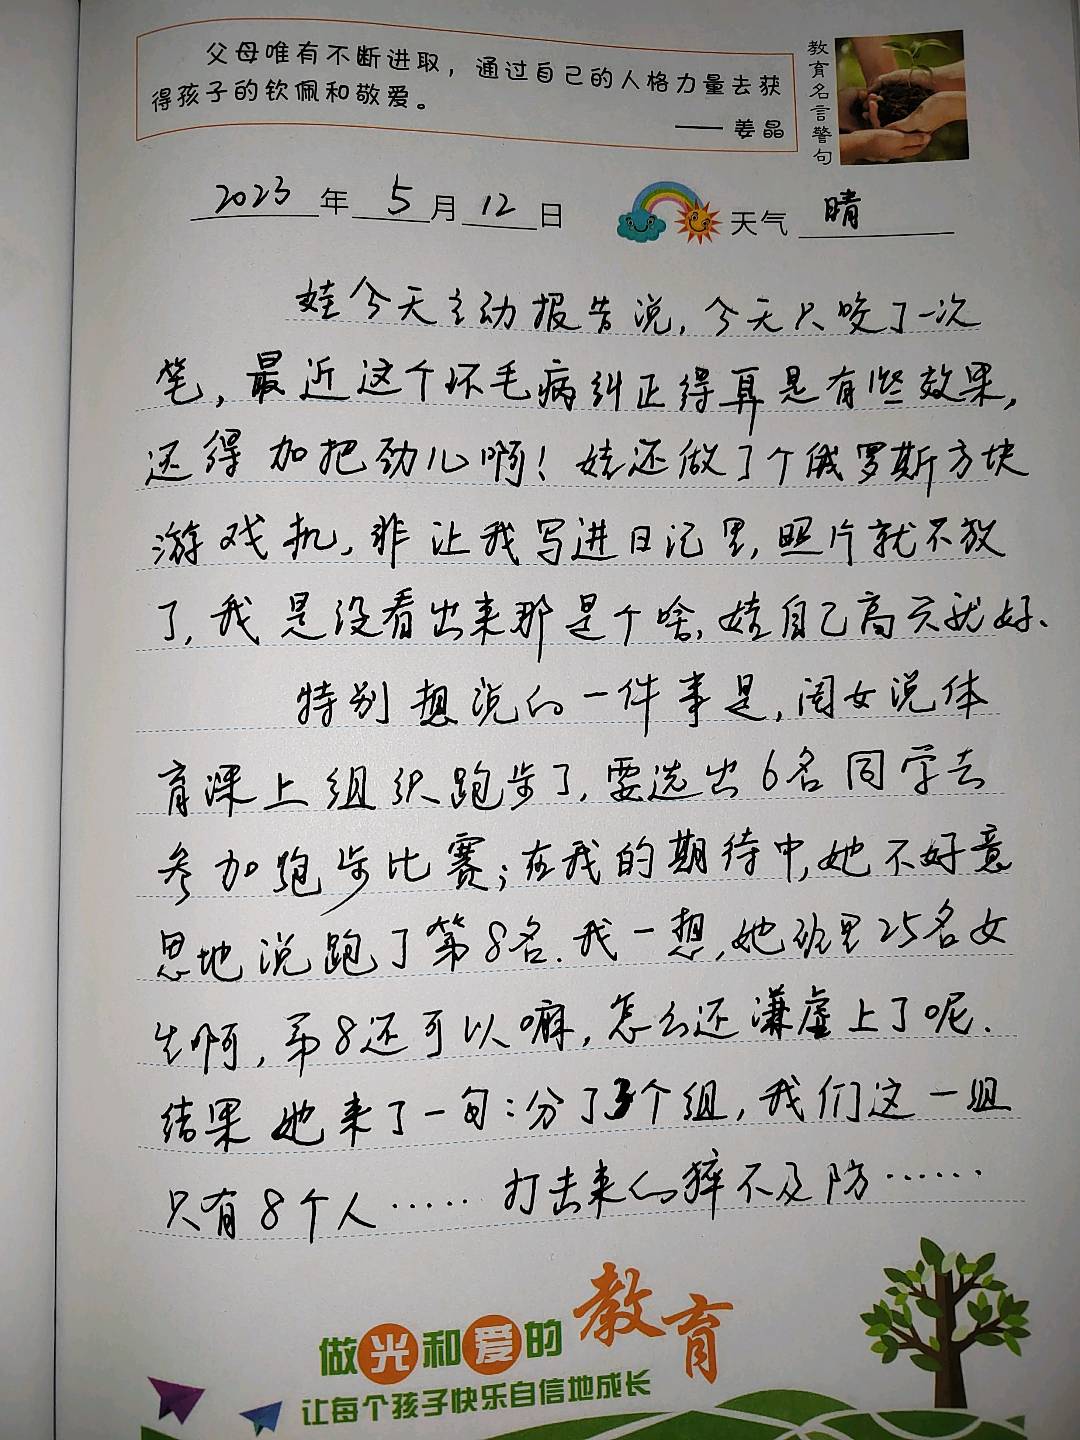 父母唯有不断进取，通过自己的人格力量去获
得孩子的钦佩和敬爱。
—— 姜晶
教育名言警句
2023年5月12日 天气 晴
娃今天主动报告说，今天只咬了一次
笔，最近这个坏毛病纠正得算是有些效果，
还得加把劲儿啊！娃还做了个俄罗斯方块
游戏机，非让我写进日记里，照片就不放
了，我是没看出来那是个啥，娃自己高兴就好、
特别想说的一件事是，闺女说体
育课上组织跑步了，要选出6名同学去
参加跑步比赛；在我的期待中，她不好意
思地说跑了第8名．我一想，她班里25名女
生啊，第8还可以嘛，怎么还谦虚上了呢．
结果她来了一句：分了3个组，我们这一组
只有8个人…… 打击来的猝不及防……
做光和爱的教育
让每个孩子快乐自信地成长